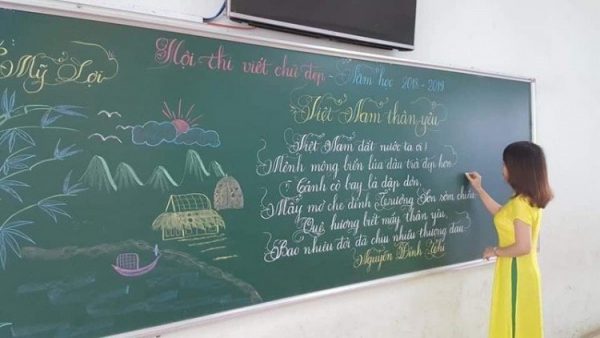 Mỹ Lợi
Hội thi viết chữ đẹp - Năm học 2018 - 2019
Việt Nam thân yêu
Việt Nam đất nước ta ơi!
Mênh mông biển lúa đâu trời đẹp hơn
Cánh cò bay lả dập dờn,
Mây mờ che đỉnh Trường Sơn sớm chiều
Quê hương biết mấy thân yêu
Bao nhiêu đời đã chịu nhiều thương đau
Nguyễn Đình Thi